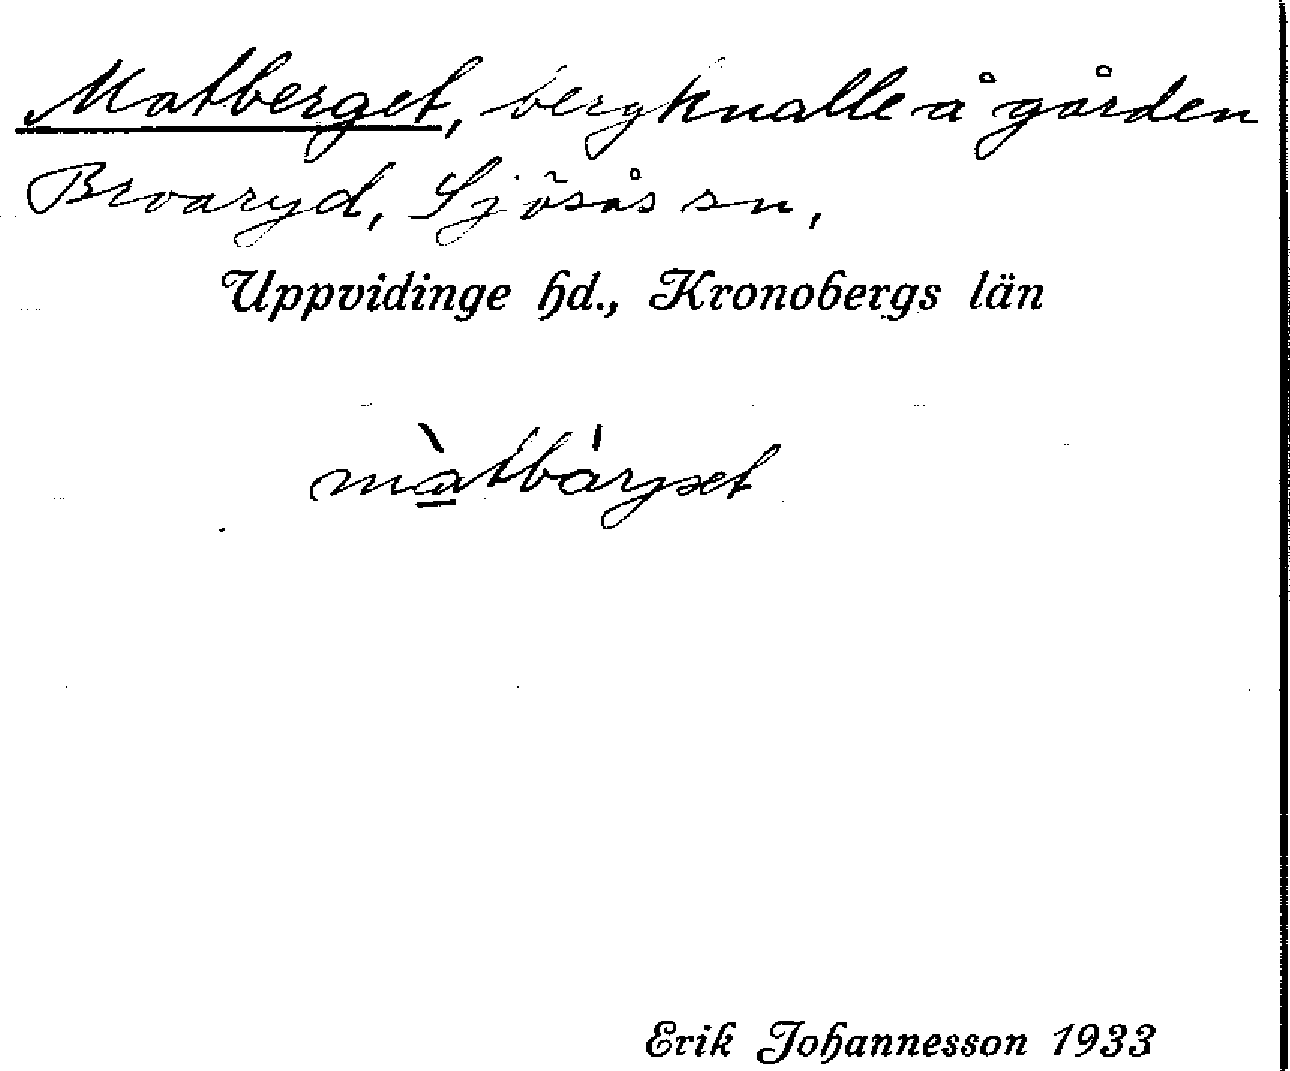 Matberget, bergknalle å gården
Broaryd, Sjösås sn,
Uppvidinge hd., Kronobergs län
màtbáryet
Erik Johannesson 1933